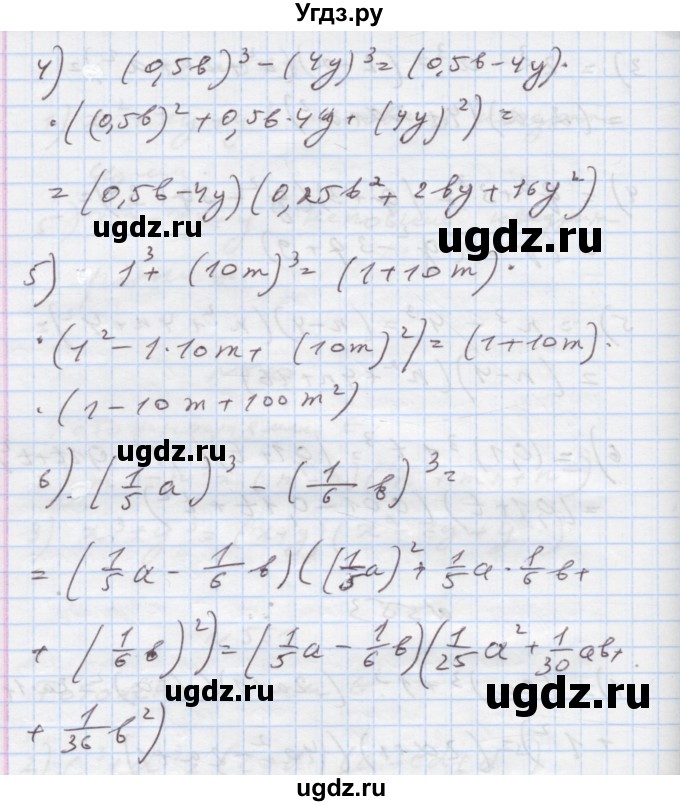 Угдз.ру
4) (0,5b)³ - (4y)³ = (0,5b - 4y) ·
· ((0,5b)² + 0,5b · 4y + (4y)²) =
= (0,5b - 4y) (0,25b² + 2by + 16y²)
ugdz.ru
ugdz.ru
5) 1³ + (10m)³ = (1 + 10m) ·
· (1² - 1 · 10m + (10m)²) = (1 + 10m) ·
· (1 - 10m + 100m²)
ugdz.ru
6) (1/5 a)³ - (1/6 b)³ =
= (1/5 a - 1/6 b) ((1/5 a)² + 1/5 a · 1/6 b +
+ (1/6 b)²) = (1/5 a - 1/6 b) (1/25 a² + 1/30 ab +
ugdz.ru
ugdz.ru
+ 1/36 b²)
ugdz.ru